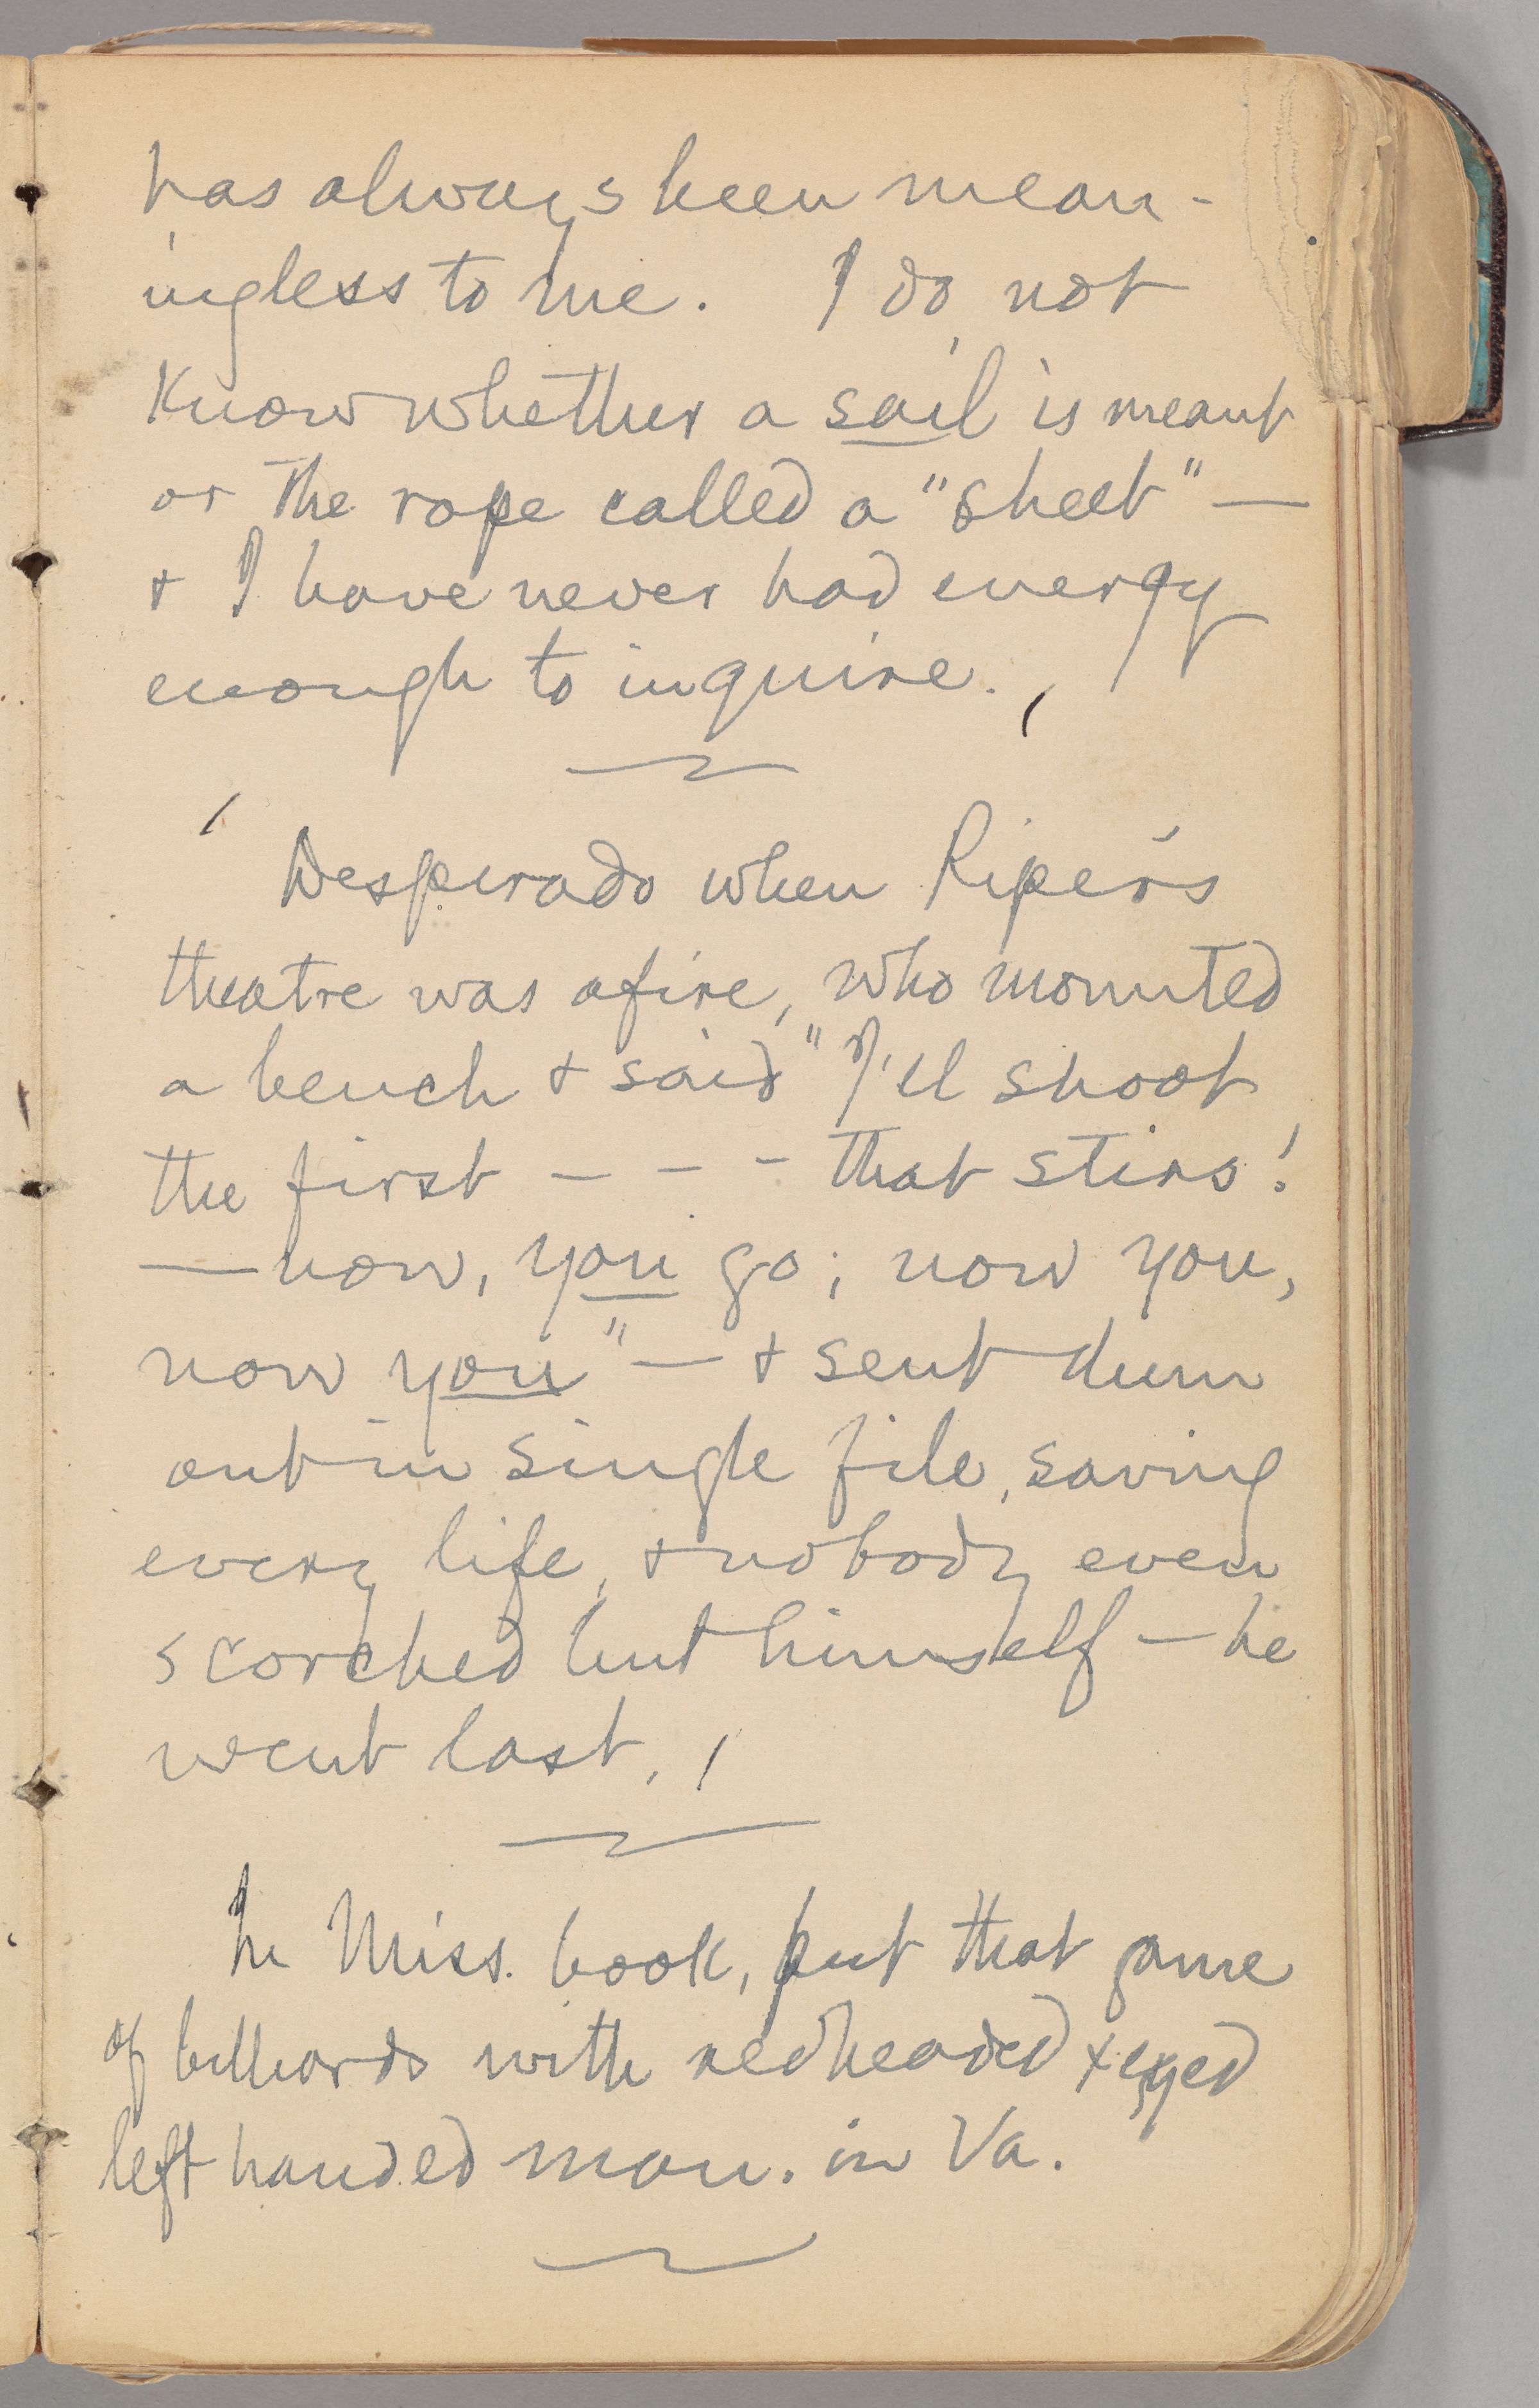 has always been mean-
ingless to me. I do not
know whether a sail is meant
or the rope called a "sheet" —
& I have never had energy
enough to inquire.
Desperado when Piper's
theatre was afire, who mounted
a bench & said "I'll shoot
the first - - - that stirs!
— now, you go; now you,
now you" — & sent them
out in single file, saving
every life, & nobody even
scorched but himself — he
went last.
In Miss. book, put that game
of billiards with redheaded x eyed
left handed man. in Va.